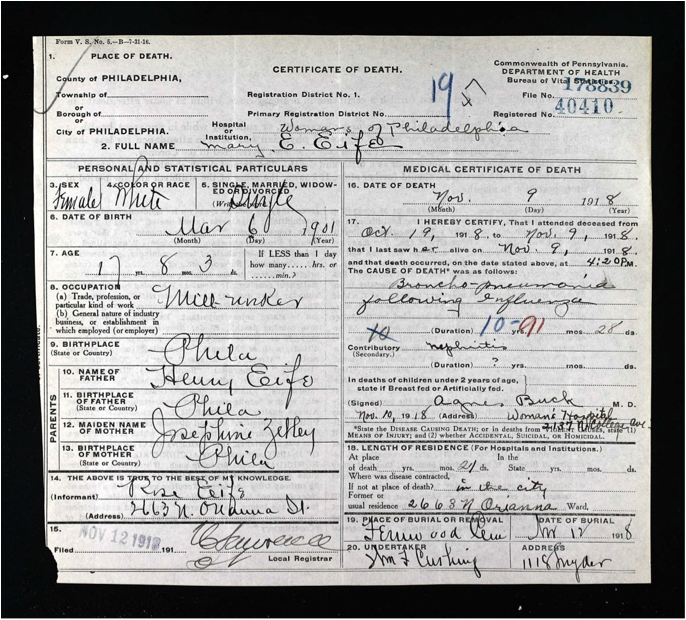 Form V. S. No. 5.—B—7-21-16.
1. PLACE OF DEATH.
County of PHILADELPHIA,
Township of
or
Borough of
or
City of PHILADELPHIA.
CERTIFICATE OF DEATH.
Registration District No. 1.
Primary Registration District No.
Hospital or Institution, Woman's of Philadelphia
Commonwealth of Pennsylvania.
DEPARTMENT OF HEALTH
Bureau of Vital Statistics.
File No. 178839
Registered No. 40410
19
2. FULL NAME Mary E. Eife
PERSONAL AND STATISTICAL PARTICULARS
3. SEX Female
4. COLOR OR RACE White
5. SINGLE, MARRIED, WIDOWED OR DIVORCED Single
6. DATE OF BIRTH Mar 6 1901
(Month) (Day) (Year)
7. AGE 17 yrs. 8 mos. 3 ds.
If LESS than 1 day
how many...... hrs. or
...... min.?
8. OCCUPATION
(a) Trade, profession, or
particular kind of work
(b) General nature of industry
business, or establishment in
which employed (or employer)
9. BIRTHPLACE
(State or Country) Phila
PARENTS
10. NAME OF
FATHER Henry Eife
11. BIRTHPLACE
OF FATHER
(State or Country) Phila
12. MAIDEN NAME
OF MOTHER Josephine
13. BIRTHPLACE
OF MOTHER
(State or Country) Phila
14. THE ABOVE IS TRUE TO THE BEST OF MY KNOWLEDGE.
(Informant) Rose Eife
(Address) 2663 N. Orianna St.
15.
Filed NOV 12 1918 191
Local Registrar
MEDICAL CERTIFICATE OF DEATH
16. DATE OF DEATH
Nov. 9 1918
(Month) (Day) (Year)
17. I HEREBY CERTIFY, That I attended deceased from
Oct. 19, 1918, to Nov. 9, 1918.
that I last saw her alive on Nov. 9, 1918.
and that death occurred, on the date stated above, at 4:20 P.M.
The CAUSE OF DEATH* was as follows:
Broncho-pneumonia
following Influenza
10 (Duration) 10-91 mos. 28 ds.
Contributory nephritis
(Secondary.)
(Duration) ? yrs. mos. ds.
In deaths of children under 2 years of age,
state if Breast fed or Artificially fed.
(Signed) Agnes Buck M. D.
Nov. 10, 1918 (Address) Woman's Hospital
2137 N College Ave.
*State the DISEASE CAUSING DEATH; or in deaths from VIOLENT CAUSES, state (1)
MEANS OF INJURY; and (2) whether ACCIDENTAL, SUICIDAL, OR HOMICIDAL.
18. LENGTH OF RESIDENCE (For Hospitals and Institutions.)
At place
of death yrs. mos. 21 ds. In the State yrs. mos. ds.
Where was disease contracted,
If not at place of death? in the city
Former or
usual residence 2663 N Orianna Ward,
19. PLACE OF BURIAL OR REMOVAL
Fernwood Cem
DATE OF BURIAL
Nov 12 1918
20. UNDERTAKER
Wm F Cushing
ADDRESS
1118 Snyder